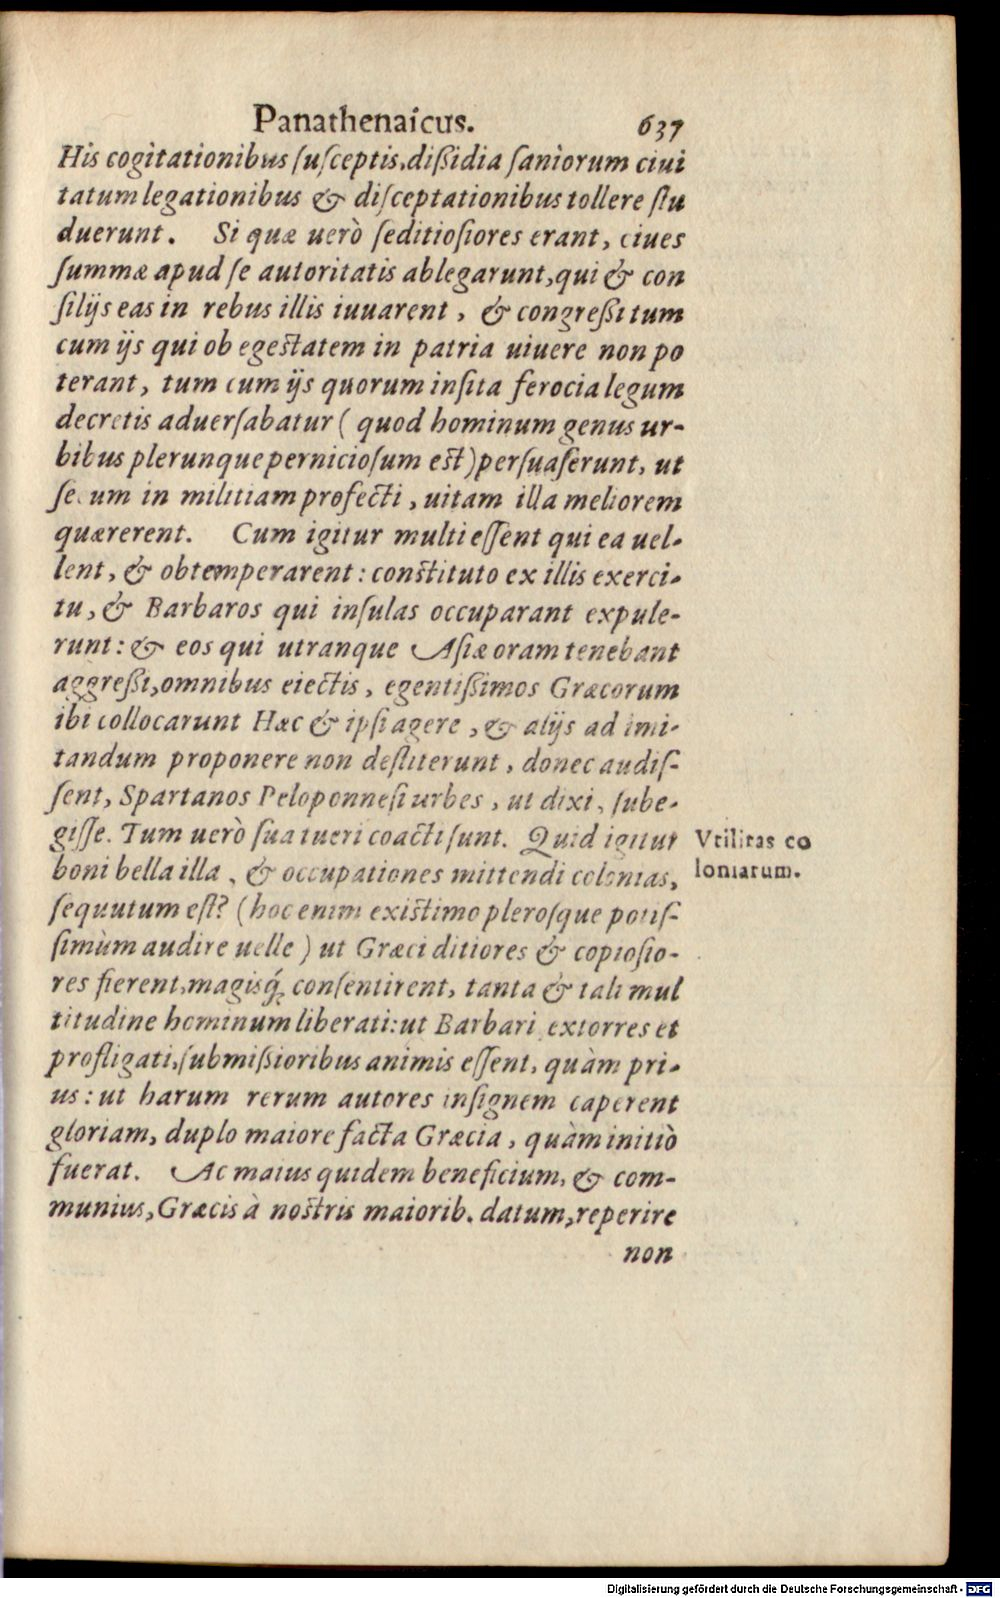 Panathenaicus. 637
His cogitationibus ſuſceptis, dißidia ſaniorum ciui
tatum legationibus & diſceptationibus tollere ſtu
duerunt. Si quæ uerò ſeditioſiores erant, ciues
ſummæ apud ſe autoritatis ablegarunt, qui & con
ſilijs eas in rebus illis iuuarent, & congreßi tum
cum ijs qui ob egeſtatem in patria uiuere non po
terant, tum cum ijs quorum inſita ferocia legum
decretis aduerſabatur (quod hominum genus ur-
bibus plerunque pernicioſum eſt) perſuaſerunt, ut
ſecum in militiam profecti, uitam illa meliorem
quærerent. Cum igitur multi eſſent qui ea uel-
lent, & obtemperarent: conſtituto ex illis exerci-
tu, & Barbaros qui inſulas occuparant expule-
runt: & eos qui utranque Aſiæ oram tenebant
aggreßi, omnibus eiectis, egentißimos Græcorum
ibi collocarunt Hæc & ipſi agere, & alijs ad imi-
tandum proponere non deſtiterunt, donec audiſ-
ſent, Spartanos Peloponneſi urbes, ut dixi, ſube-
giſſe. Tum uerò ſua tueri coacti ſunt. Quid igitur
boni bella illa, & occupationes mittendi colonias,
ſequutum eſt? (hoc enim exiſtimo pleroſque potiſ-
ſimùm audire uelle) ut Græci ditiores & copioſio-
res fierent, magisq́; conſentirent, tanta & tali mul
titudine hominum liberati: ut Barbari extorres et
profligati, ſubmißioribus animis eſſent, quàm pri-
us: ut harum rerum autores inſignem caperent
gloriam, duplo maiore facta Græcia, quàm initiò
fuerat. Ac maius quidem beneficium, & com-
munius, Græcis à noſtris maiorib. datum, reperire
non
Vtilitas co
loniarum.
Digitalisierung gefördert durch die Deutsche Forschungsgemeinschaft - DFG